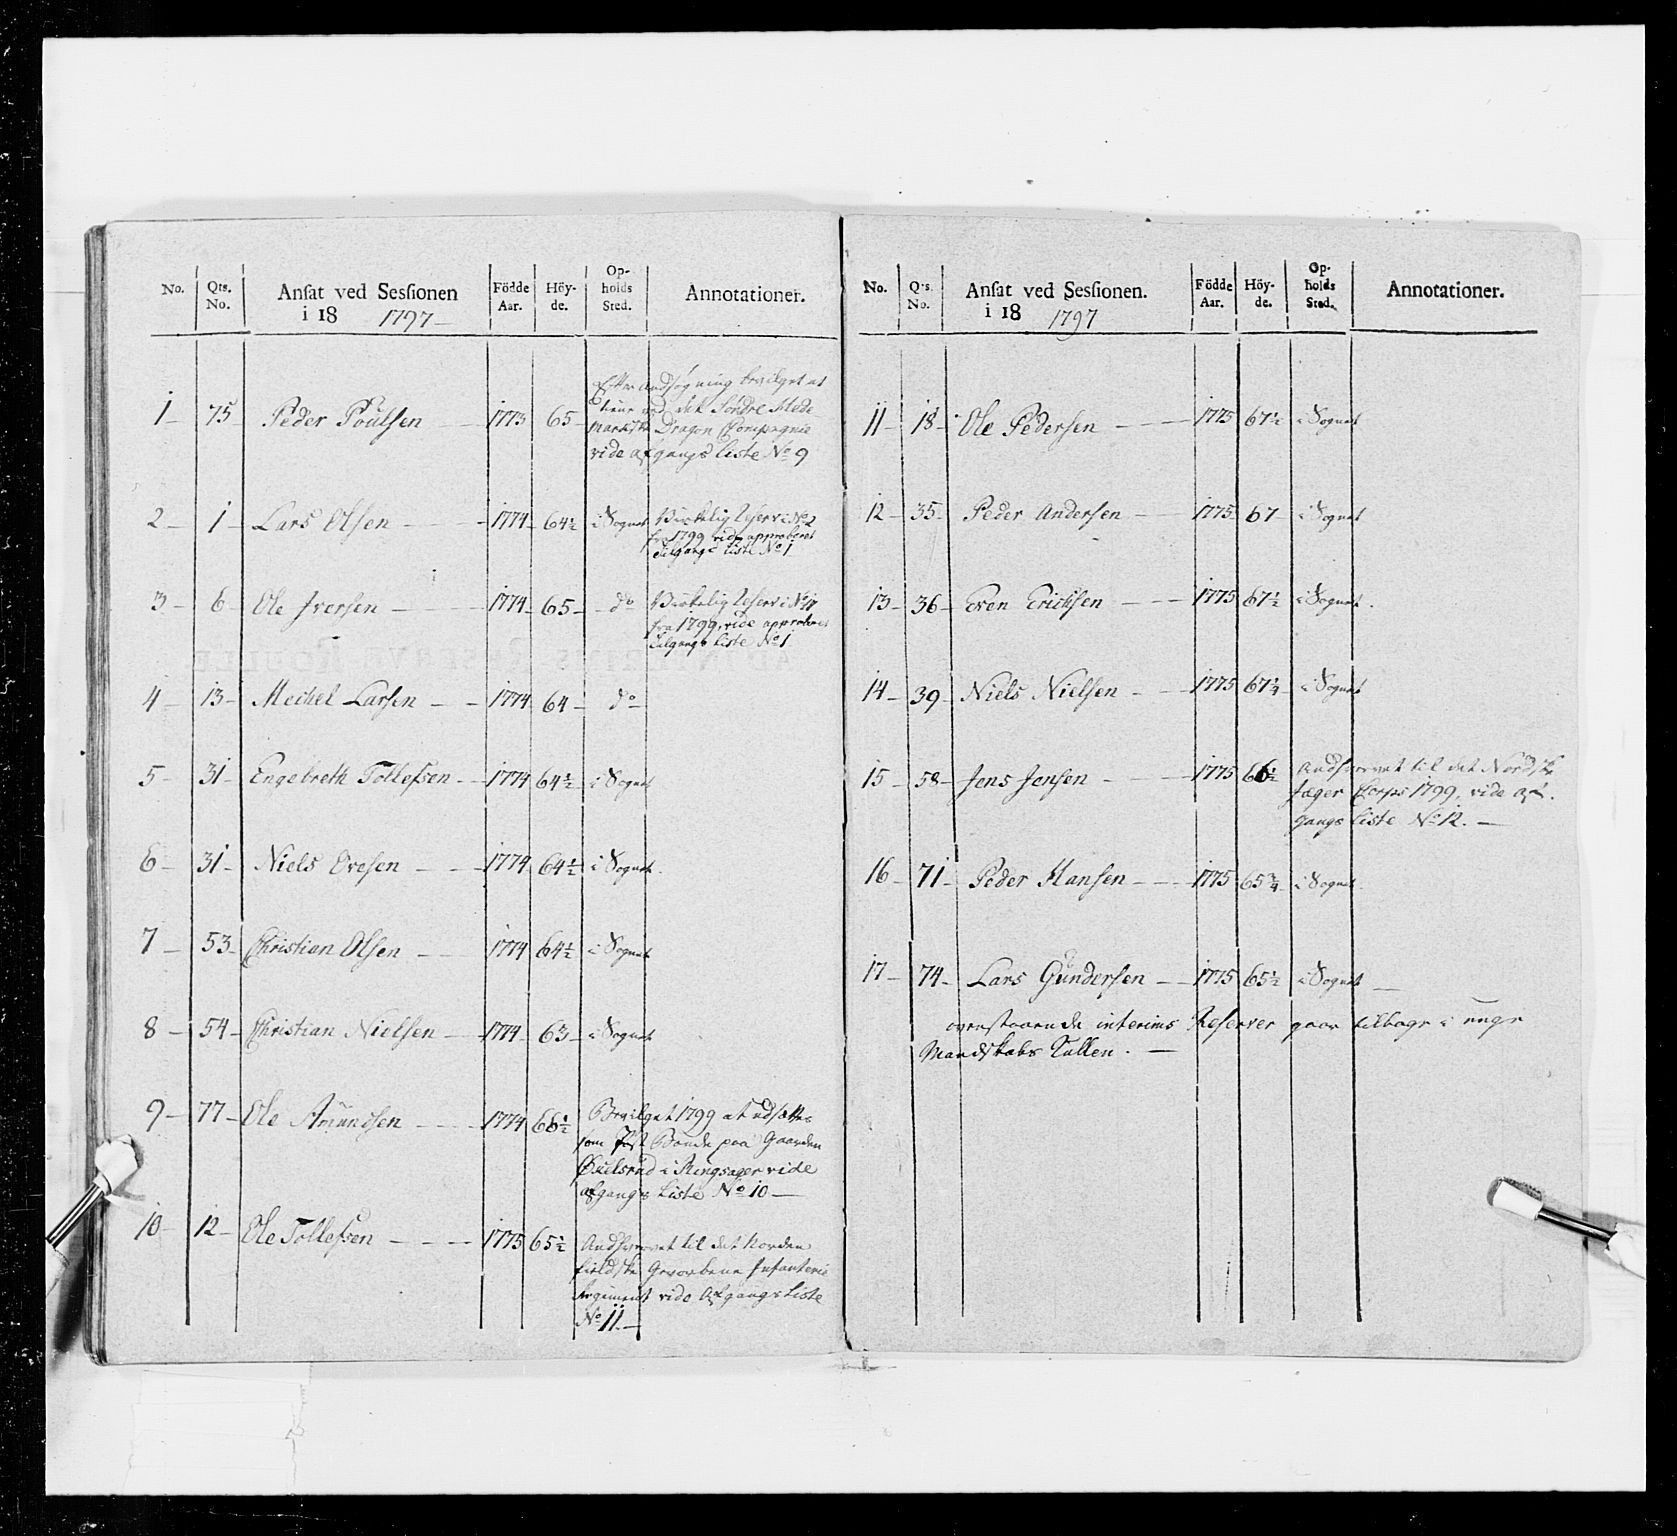 No. Qts. No. Ansat ved Sessionen i 18 1797 Födde Aar. Höyde. Opholds Sted. Annotationer.
1 75 Peder Poulsen 1773 65 Efter andsøgning bevilget at
tiene ved det Søndre Hedemarkske Dragon Compagnie
vide afgangs Liste No 9
2 1 Lars Olsen 1774 64½ i Sognet Virkelig Reserv i No 2
fra 1799 vide approberet
Tilgangs Liste No 1
3 6 Ole Iversen 1774 65 do Virkelig Reserv i No
fra 1799, vide approberet
Tilgangs Liste No 1
4 13 Mechel Larsen 1774 64 do
5 31 Engebreth Tollefsen 1774 64½ i Sognet
6 31 Niels Ovesen 1774 64½ i Sognet
7 53 Christian Olsen 1774 64½ i Sognet
8 54 Christian Nielsen 1774 63 i Sognet
9 77 Ole Amundsen 1774 66½ Bevilget 1799 at udsættes
som Post Bonde paa Gaarden
i Ringsager vide
afgangs Liste No 10
10 12 Ole Tollefsen 1775 65½ Andhvervet til det Norden
fieldske Gevorbene Infanterie
Regiment vide Afgangs Liste
No 11
No. Qts. No. Ansat ved Sessionen. i 18 1797 Födde Aar. Höyde. Opholds Sted. Annotationer.
11 18 Ole Pedersen 1775 67½ i Sognet
12 35 Peder Andersen 1775 67 i Sognet
13 36 Even Erichsen 1775 67½ i Sognet
14 39 Niels Nielsen 1775 67¼ i Sognet
15 58 Jens Jensen 1775 66½ Andhvervet til det Nordske
Jæger Corps 1799, vide Af-
gangs Liste No 12.
16 71 Peder Hansen 1775 65¾ i Sognet
17 74 Lars Gundersen 1775 65½ i Sognet
ovenstaaende interims Reserver gaar tilbage i unge
Mandskabs Rullen.